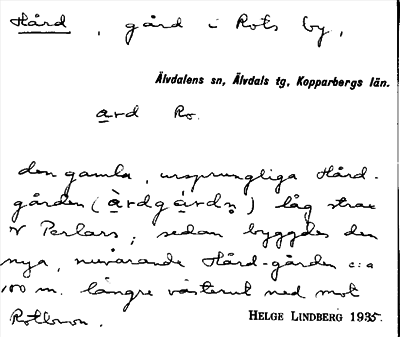 Hård, gård i Rots by,
Älvdalens sn, Älvdals tg, Kopparbergs län.
ard Ro.
den gamla, ursprungliga Hård-
gården (àrdgárdn̥) låg strax
V Perlars; sedan byggdes den
nya, nuvarande Hård-gården c:a
100 m. längre västerut ned mot
Rotbron.
HELGE LINDBERG 1935.